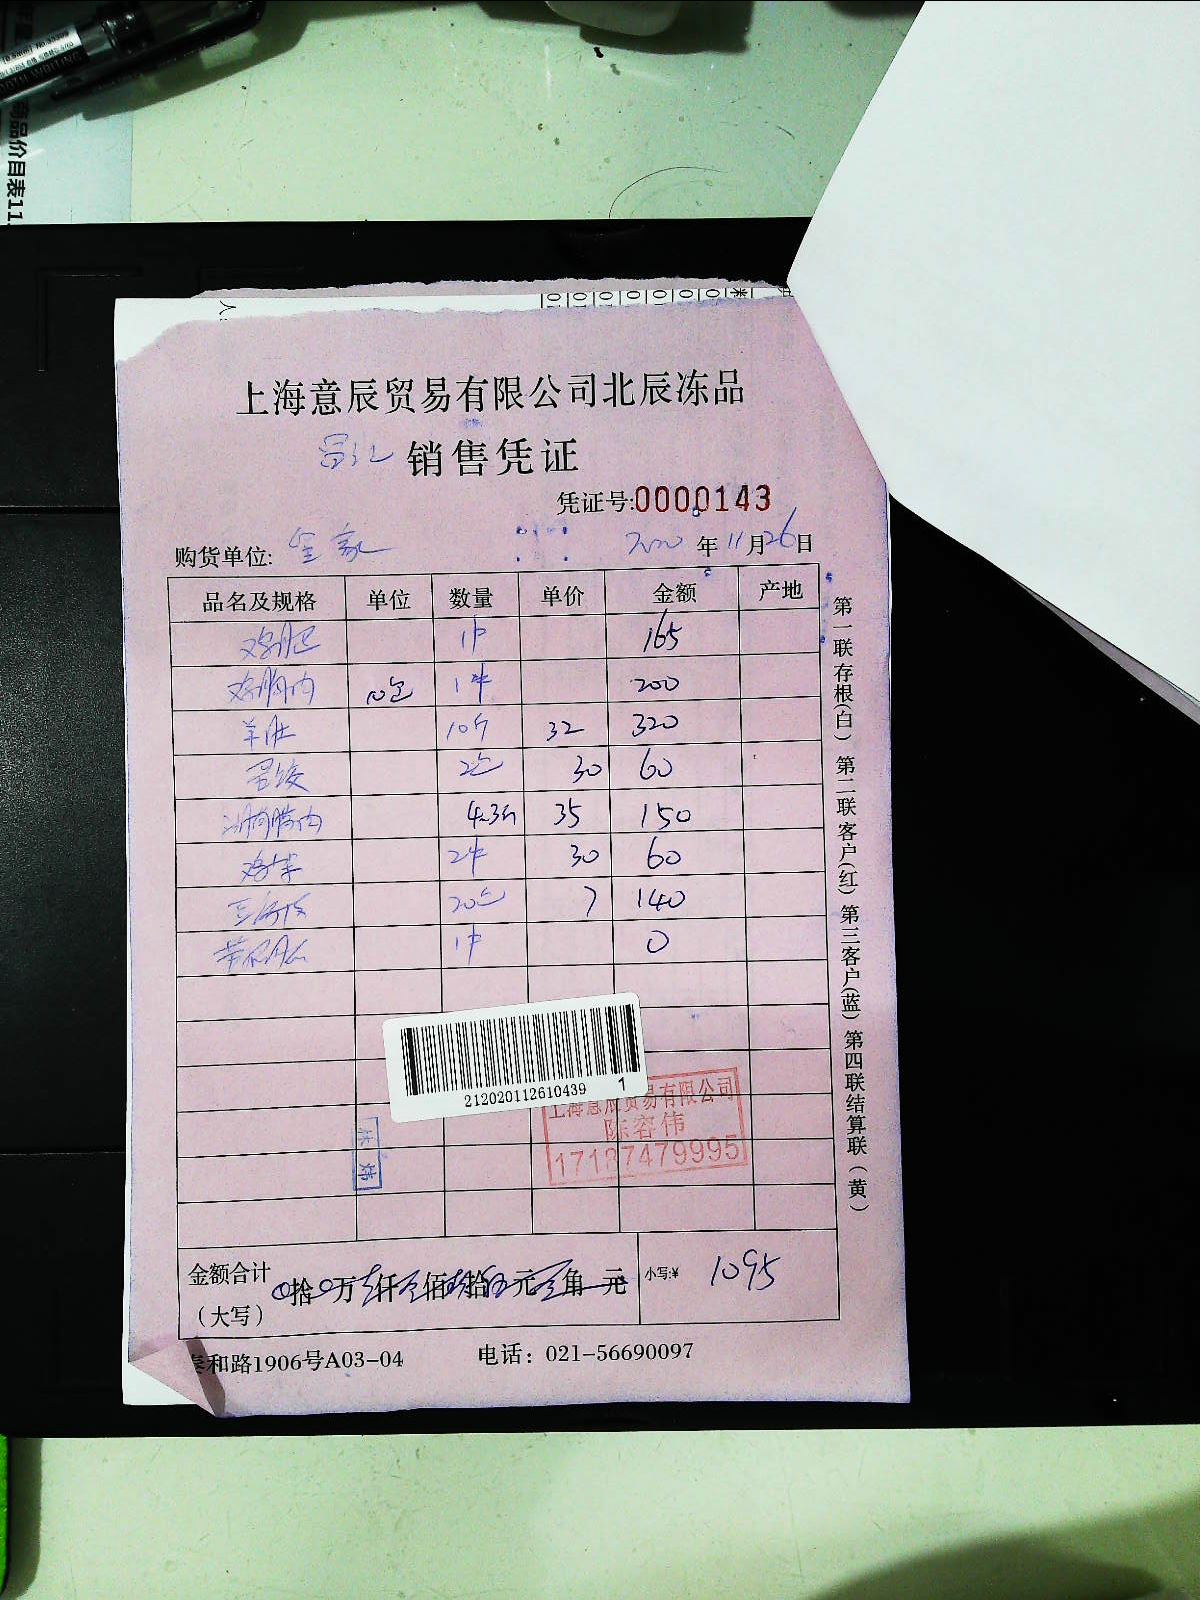 商品价目表11
上海意辰贸易有限公司北辰冻品
销售凭证
凭证号:0000143
购货单位: 2020年11月26日
品名及规格 单位 数量 单价 金额 产地
1件 165
鸡胸肉 10包 1件 200
羊肚 10斤 32 320
2包 30 60
4.3斤 35 150
2件 30 60
20包 7 140
1件 0
212020112610439 1
上海意辰贸易有限公司
陈容伟
17187479995
金额合计 拾万仟佰拾元角元 小写:¥ 1095
（大写）
泰和路1906号A03-04 电话：021-56690097
第一联存根(白) 第二联客户(红) 第三客户(蓝) 第四联结算联(黄)